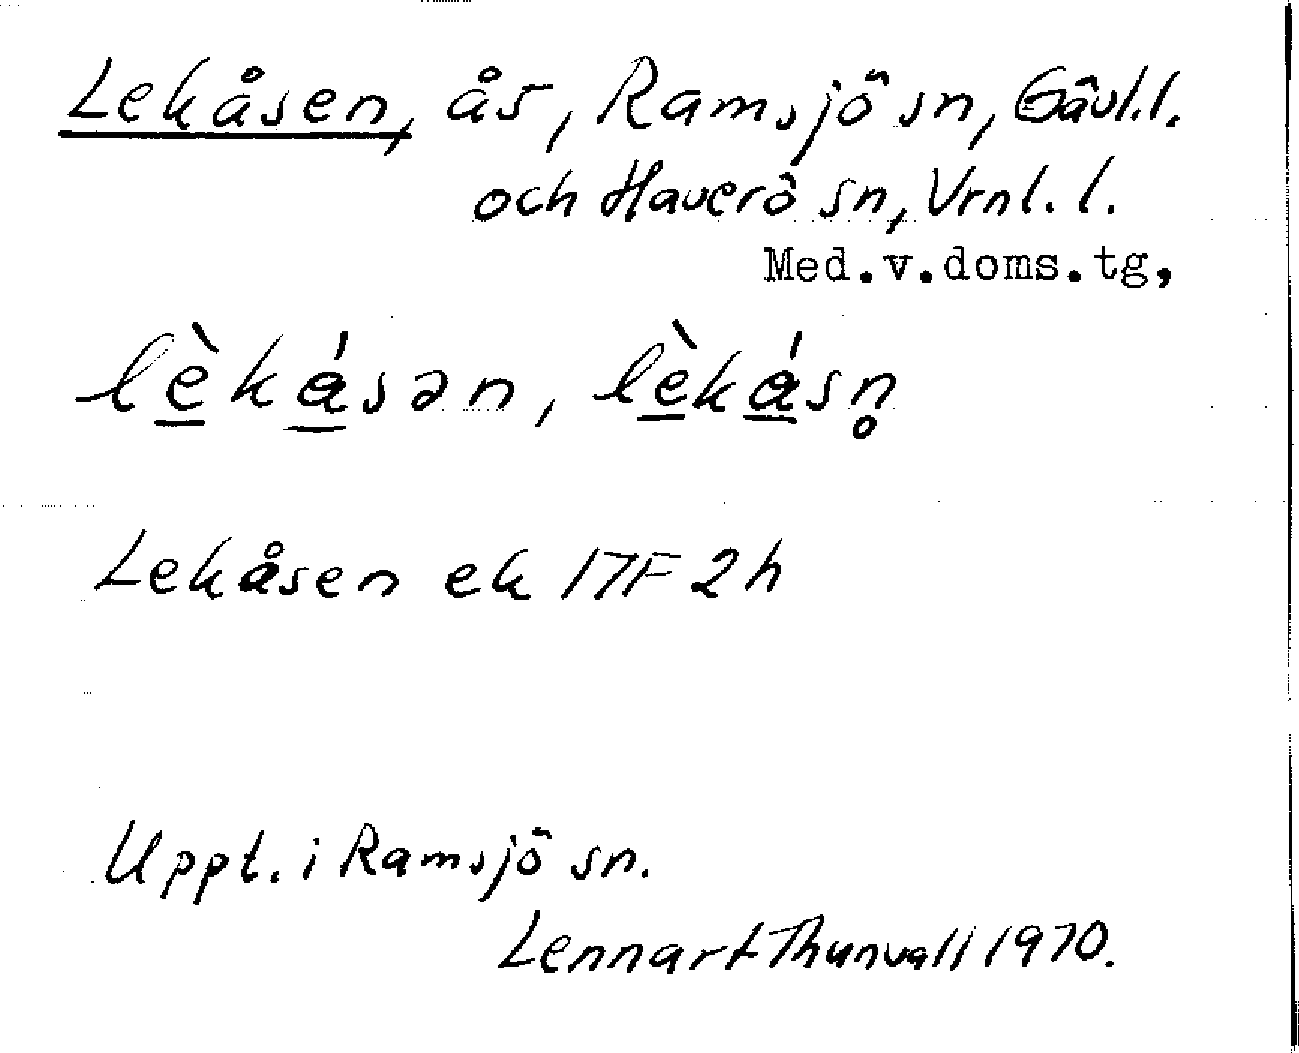 Lekåsen, ås, Ramsjö sn, Gävl.l.
och Haverö sn, Vrnl. l.
Med.v.doms.tg,
lèkásən, lèkásn̥
Lekåsen ek 17F 2h
Uppt. i Ramsjö sn.
Lennart Thunvall 1970.